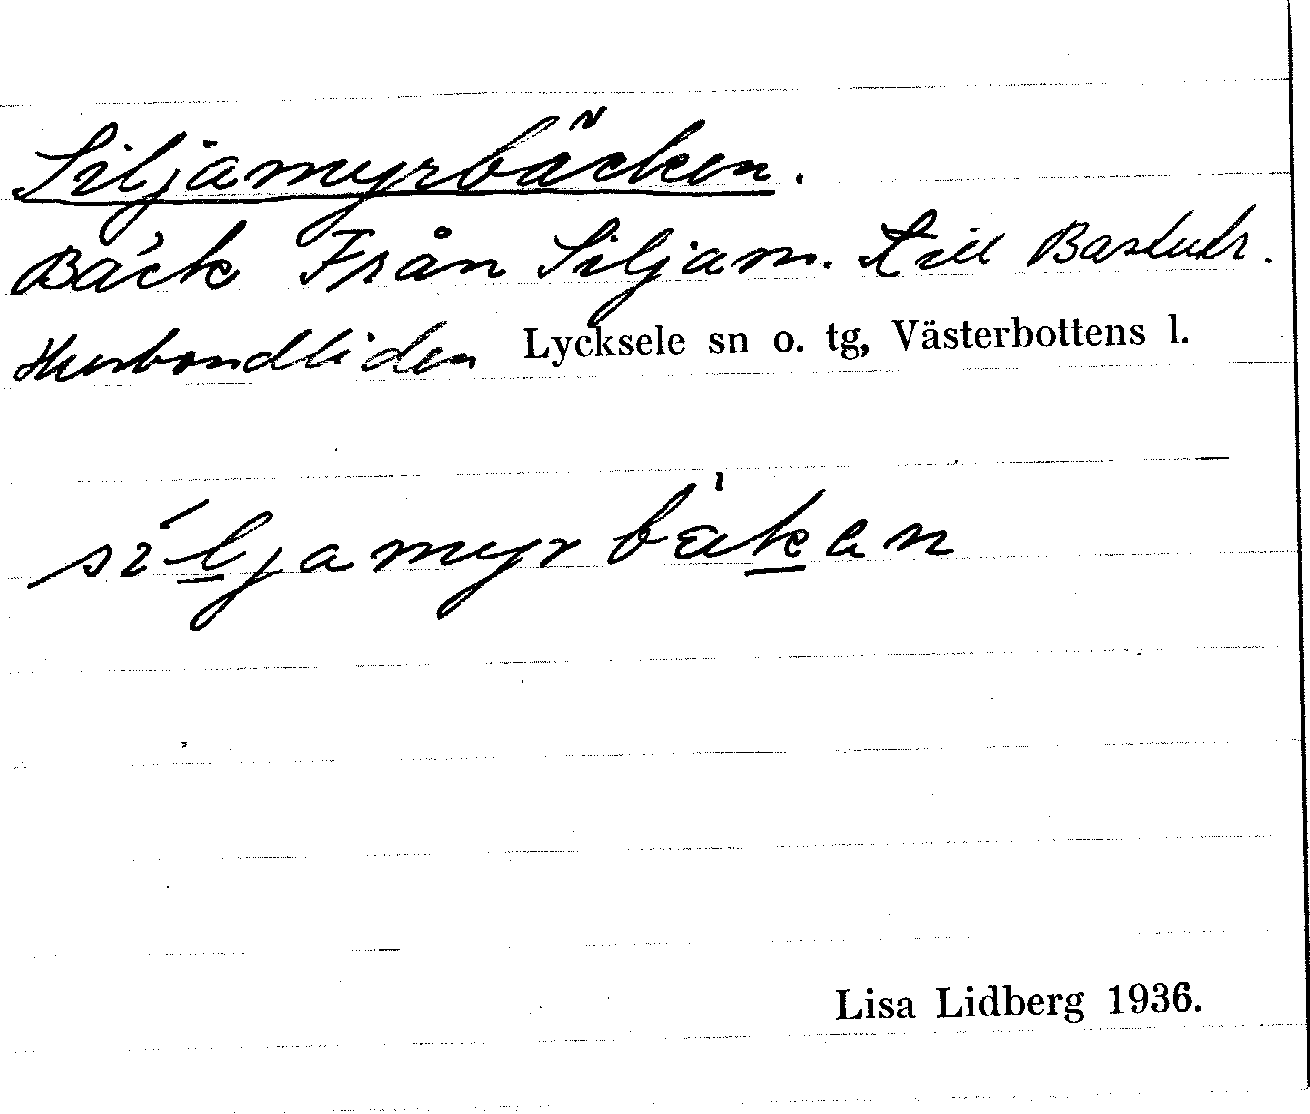 Siljamyrbäcken.
Bäck Från Siljam. till
Husbondliden Lycksele sn o. tg, Västerbottens l.
síljamyrbäkan
Lisa Lidberg 1936.